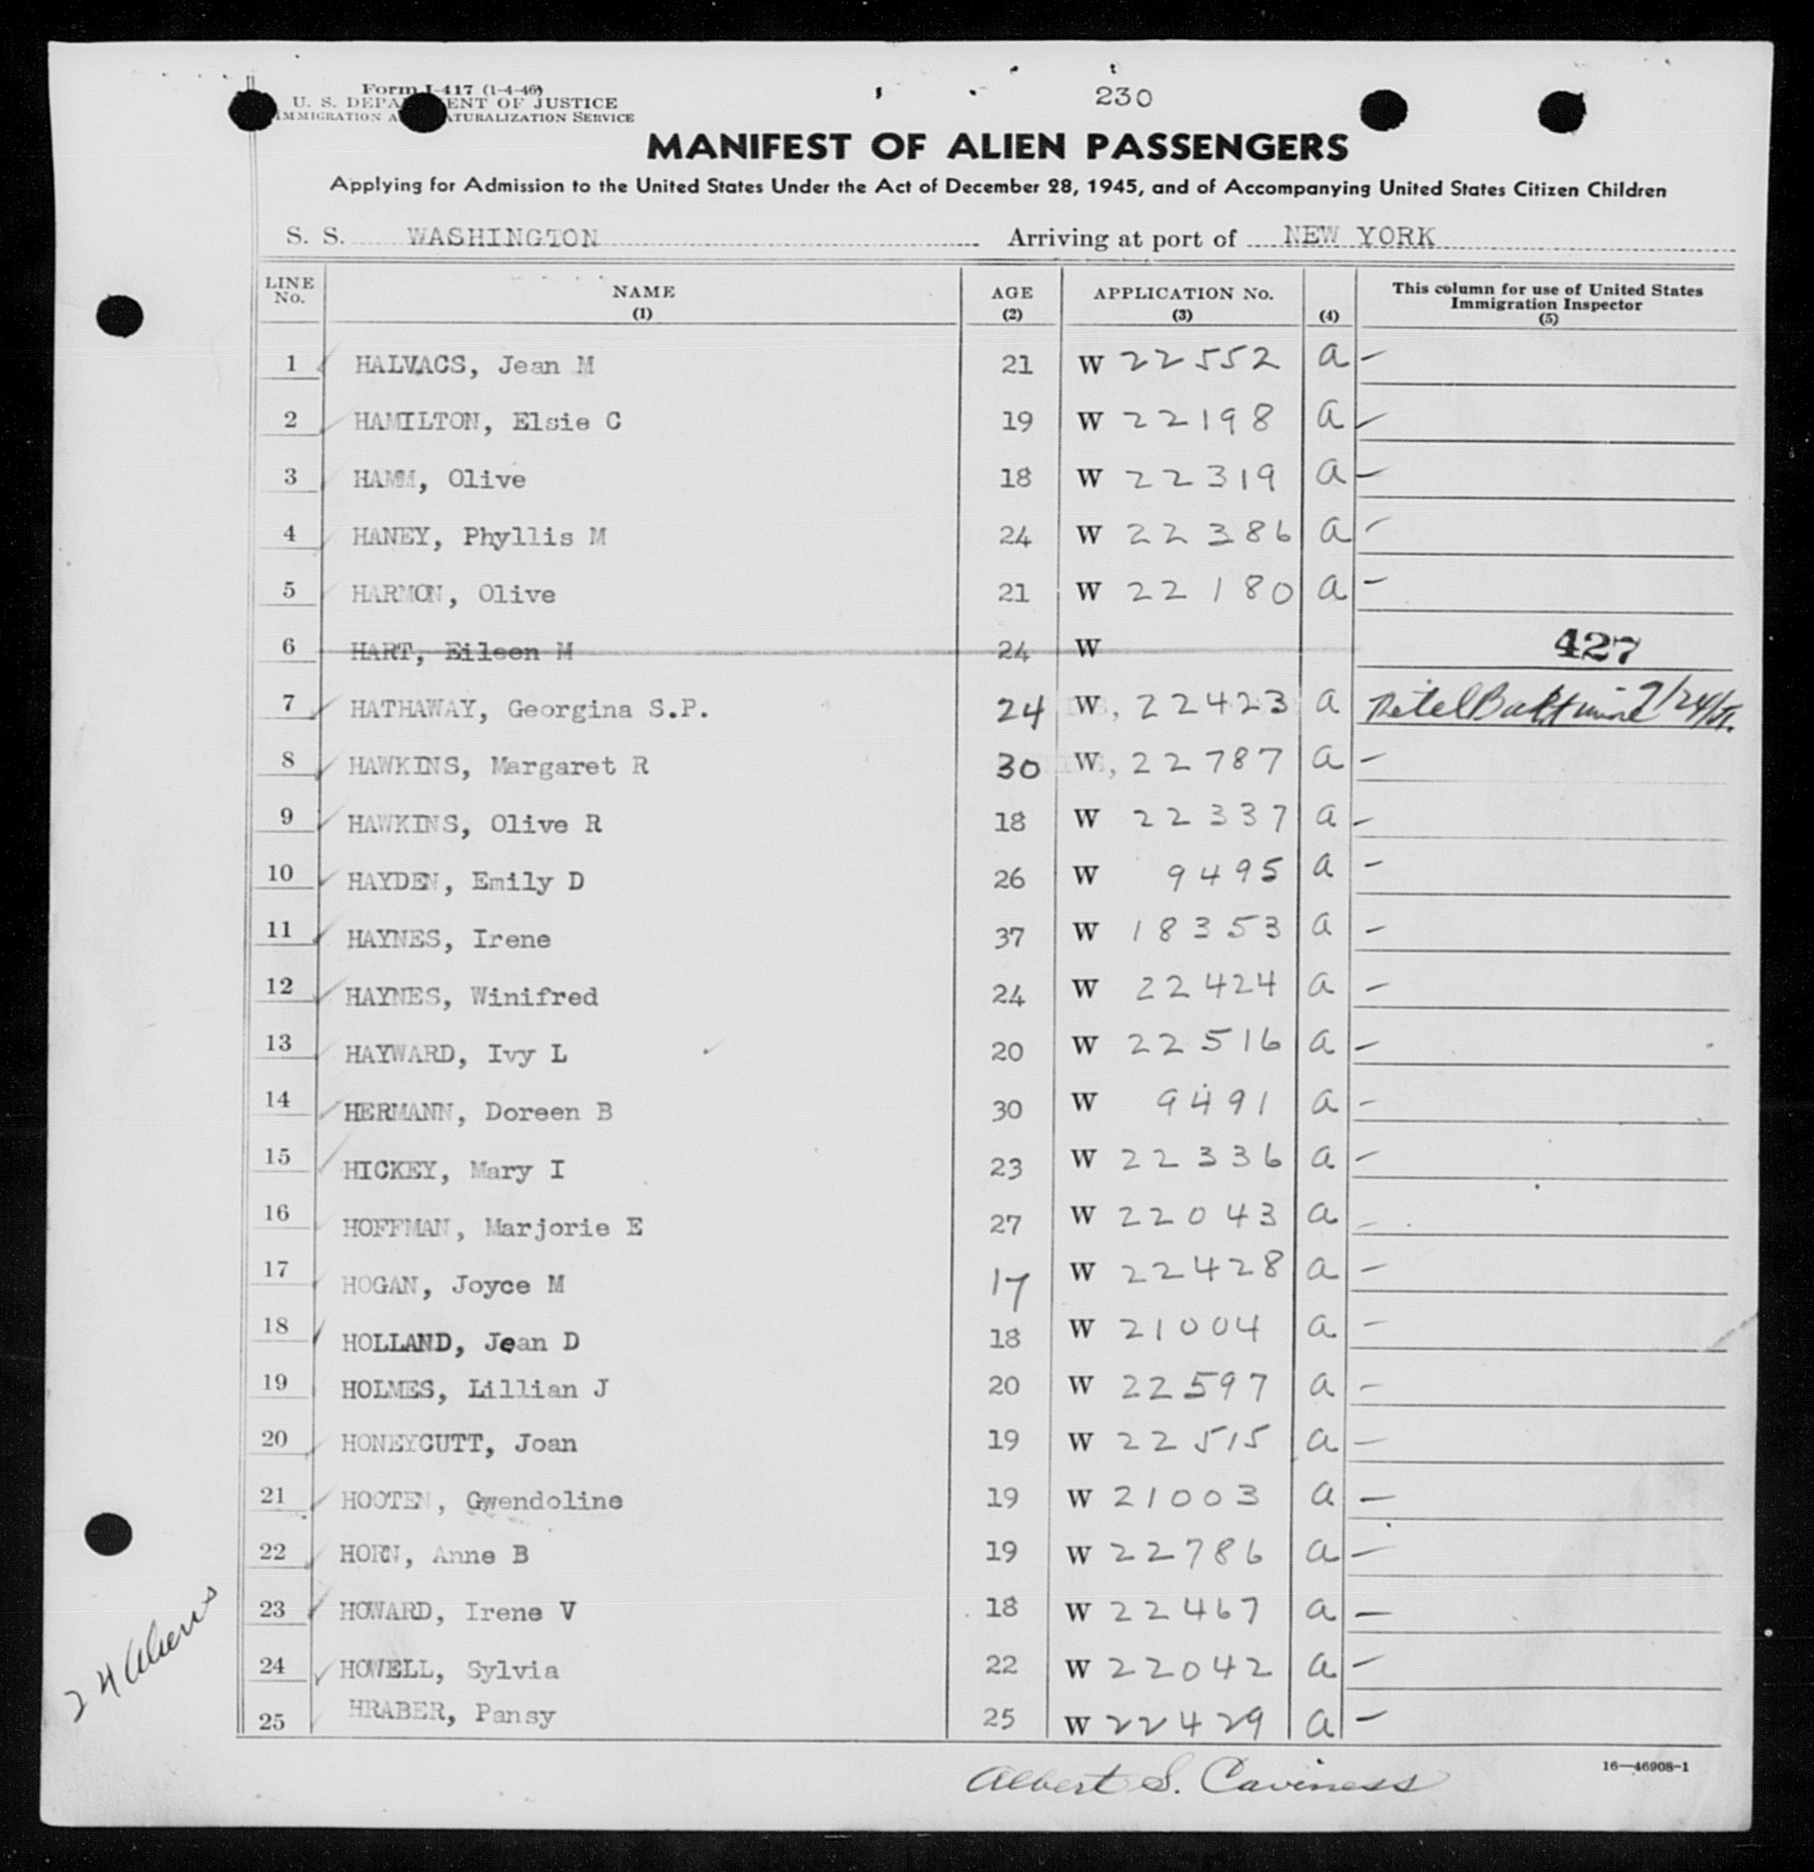 Form I-417 (1-4-46)
U. S. DEPA ENT OF JUSTICE
IMMIGRATION A ATURALIZATION SERVICE
230
MANIFEST OF ALIEN PASSENGERS
Applying for Admission to the United States Under the Act of December 28, 1945, and of Accompanying United States Citizen Children
S. S. WASHINGTON Arriving at port of NEW YORK
LINE No. NAME (1) AGE (2) APPLICATION No. (3) (4) This column for use of United States Immigration Inspector (5)
1 HALVACS, Jean M 21 W 22552 a —
2 HAMILTON, Elsie C 19 W 22198 a —
3 HAMM, Olive 18 W 22319 a —
4 HANEY, Phyllis M 24 W 22386 a —
5 HARMON, Olive 21 W 22180 a —
6 HART, Eileen M 24 W 427
7 HATHAWAY, Georgina S.P. 24 W, 22423 a
8 HAWKINS, Margaret R 30 W, 22787 a —
9 HAWKINS, Olive R 18 W 22337 a —
10 HAYDEN, Emily D 26 W 9495 a —
11 HAYNES, Irene 37 W 18353 a —
12 HAYNES, Winifred 24 W 22424 a —
13 HAYWARD, Ivy L 20 W 22516 a —
14 HERMANN, Doreen B 30 W 9491 a —
15 HICKEY, Mary I 23 W 22336 a —
16 HOFFMAN, Marjorie E 27 W 22043 a —
17 HOGAN, Joyce M 17 W 22428 a —
18 HOLLAND, Jean D 18 W 21004 a —
19 HOLMES, Lillian J 20 W 22597 a —
20 HONEYCUTT, Joan 19 W 22515 a —
21 HOOTEN, Gwendoline 19 W 21003 a —
22 HORN, Anne B 19 W 22786 a —
23 HOWARD, Irene V 18 W 22467 a —
24 HOWELL, Sylvia 22 W 22042 a —
25 HRABER, Pansy 25 W 22429 a —
24 Aliens
16—46908-1
Albert S. Caviness